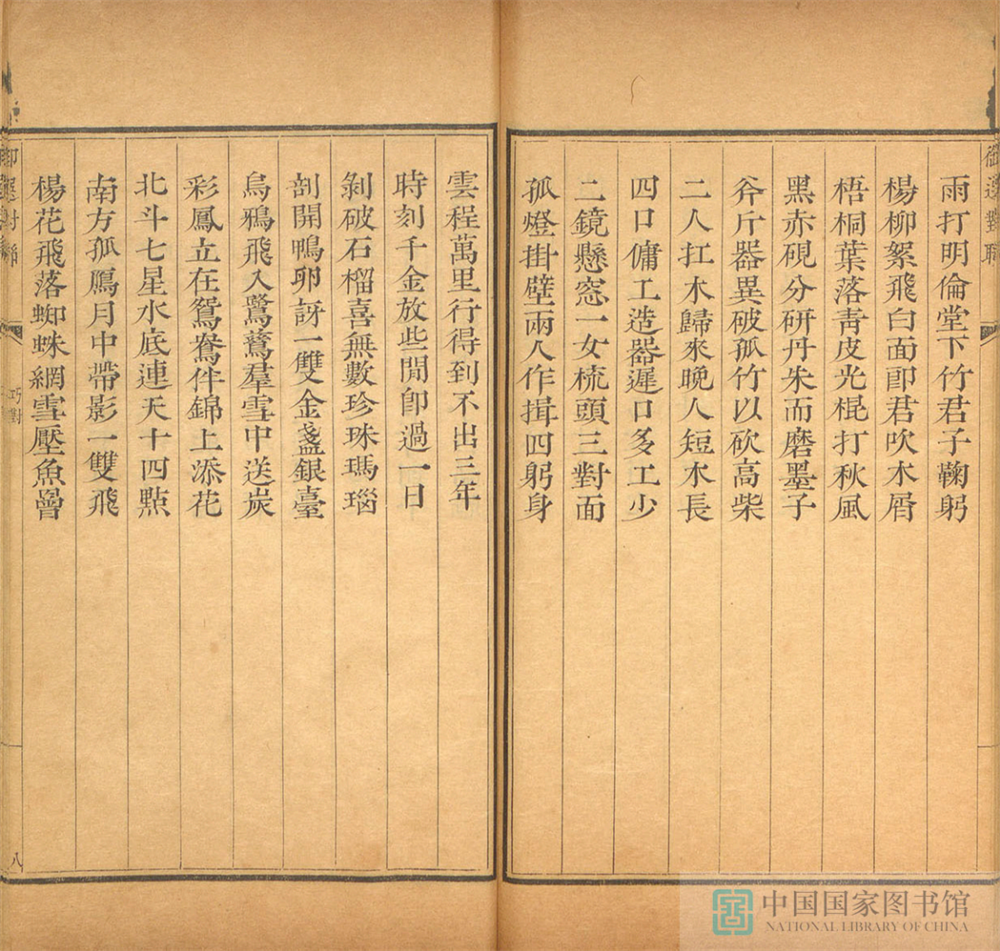 雨打明倫堂下竹君子鞠躬
楊柳絮飛白面郎君吹木屑
梧桐葉落青皮光棍打秋風
黑赤硯分研丹朱而磨墨子
斧斤器異破孤竹以砍高柴
二人扛木歸來晚人短木長
四口傭工造器遲口多工少
二鏡懸窓一女梳頭三對面
孤燈掛壁兩人作揖四躬身
雲程萬里行得到不出三年
時刻千金放些閒卽過一日
剝破石榴喜無數珍珠瑪瑙
剖開鴨卵訝一雙金盞銀臺
烏鴉飛入鷺鶿羣雪中送炭
彩鳳立在鴛鴦伴錦上添花
北斗七星水底連天十四點
南方孤鴈月中帶影一雙飛
楊花飛落蜘蛛網雪壓魚罾
巧對
八
中国国家图书馆
NATIONAL LIBRARY OF CHINA